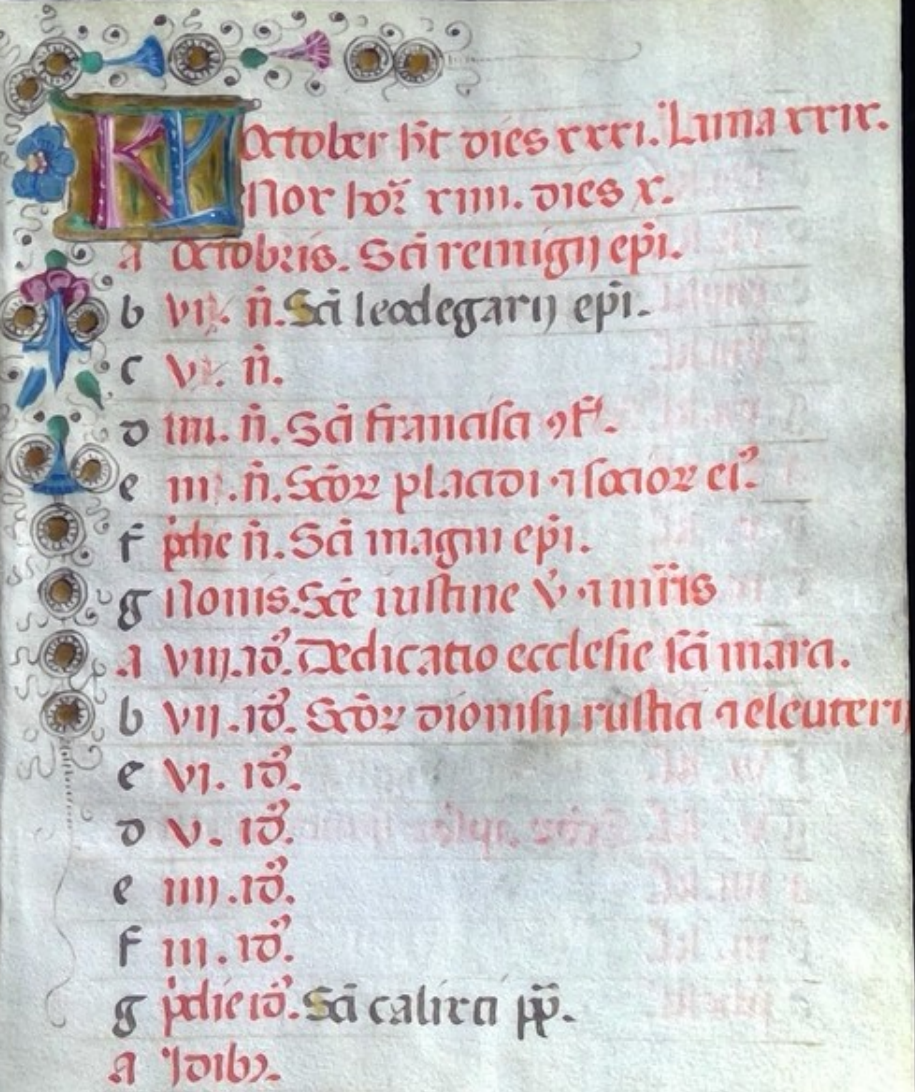 KL October h̄t dies xxxi. Luna xxix.
Nox hoꝝ xiiii. dies x.
A octobris. Sc̄i remigij ep̄i.
b vi. n̄. Sc̄i leodegarij ep̄i.
c v. n̄.
d iiii. n̄. Sc̄i francisci ꝯf̄.
e iii. n̄. Sc̄oꝝ placidi ⁊ socioꝝ eiꝰ
f p̍die n̄. Sc̄i magni ep̄i.
g Nonis. Sc̄e iustine v̄. ⁊ mr̄is
A viij. idꝰ. Dedicatio ecclesie sc̄i marci.
b vij. idꝰ. Sc̄oꝝ dionisij rustici ⁊ eleuterij
c vi. idꝰ.
d v. idꝰ.
e iiij. idꝰ.
f iii. idꝰ.
g p̍die idꝰ. Sc̄i calixti pp̄.
A Idibꝫ